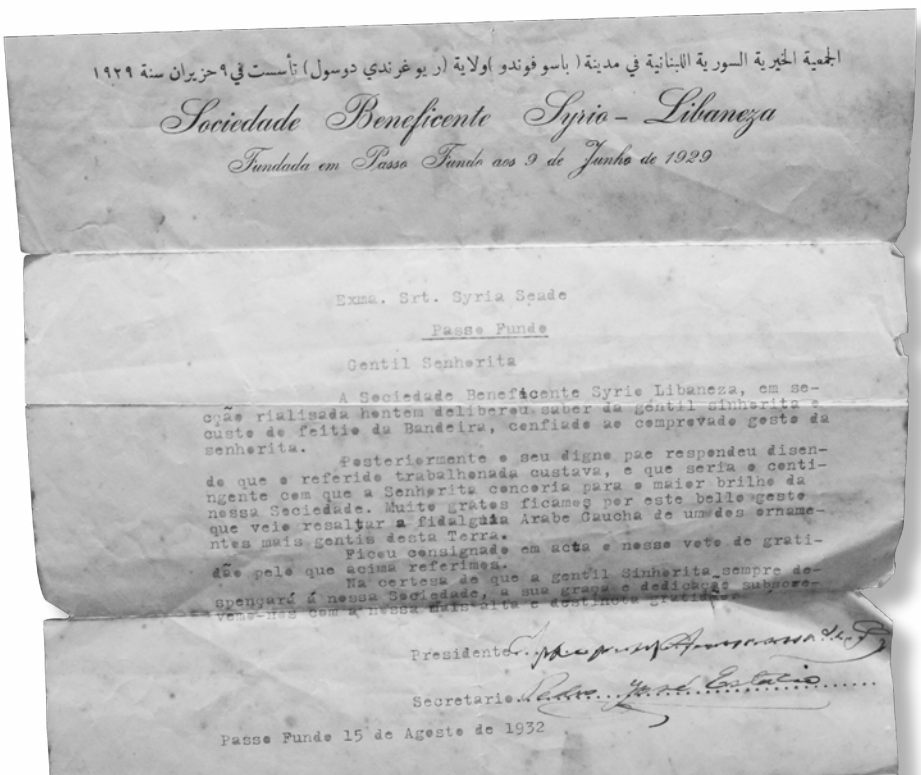 الجمعية الخيرية السورية اللبنانية في مدينة (باسو فوندو) ولاية (ريو غرندي دوسول) تأسست في ٩ حزيران سنة ١٩٢٩
Sociedade Beneficente Syrio-Libaneza
Fundada em Passo Fundo aos 9 de Junho de 1929
Exma. Srt. Syria Seade
Passo Fundo
Gentil Senhorita
A Sociedade Beneficente Syrio Libaneza, em se-
cção rialisada hontem deliberou saber da gentil sinherita o
custo do feitio da Bandeira, confiado ao comprovado gosto da
senhorita.
Posteriormente o seu digno pae respondeu disen-
do que o referido trabalhonada custava, e que seria o conti-
ngente com que a Senhorita concoria para o maior brilho da
nossa Sociedade. Muito gratos ficamos por este bello gesto
que veio resaltar a fidalguia Arabe Gaucha de um dos orname-
ntos mais gentis desta Terra.
Ficou consignado em acta o nosso voto de grati-
dão pelo que acima referimos.
Na certesa de que a gentil Sinherita sempre de-
spençará á nossa Sociedade, a sua graça e dedicação subscre-
vemo-nos com a nossa mais alta e destincta gratidão
Presidente
Secretario Pedro José Estacio
Passo Fundo 15 de Agosto de 1932